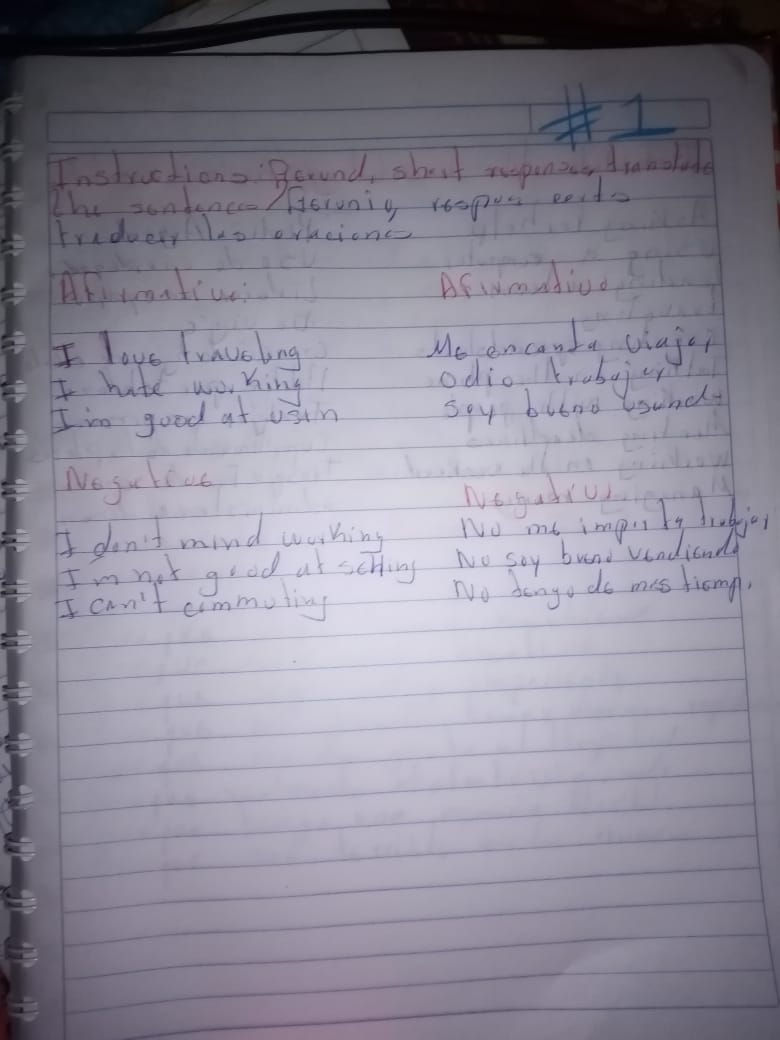 #1
Instructions: Gerund, short responses, translate
the sentences / Gerunio, respues corta
traducir las oraciones
Afirmative: Afirmativo
I love traveling Me encanta viajar
I hate working odio trabajar
I'm good at usin soy bueno usand
Negative Negativu
I don't mind working No me importa trabajar
I'm not good at selling No soy bueno vendiend
I can't commuting No tengo de mas tiemp.